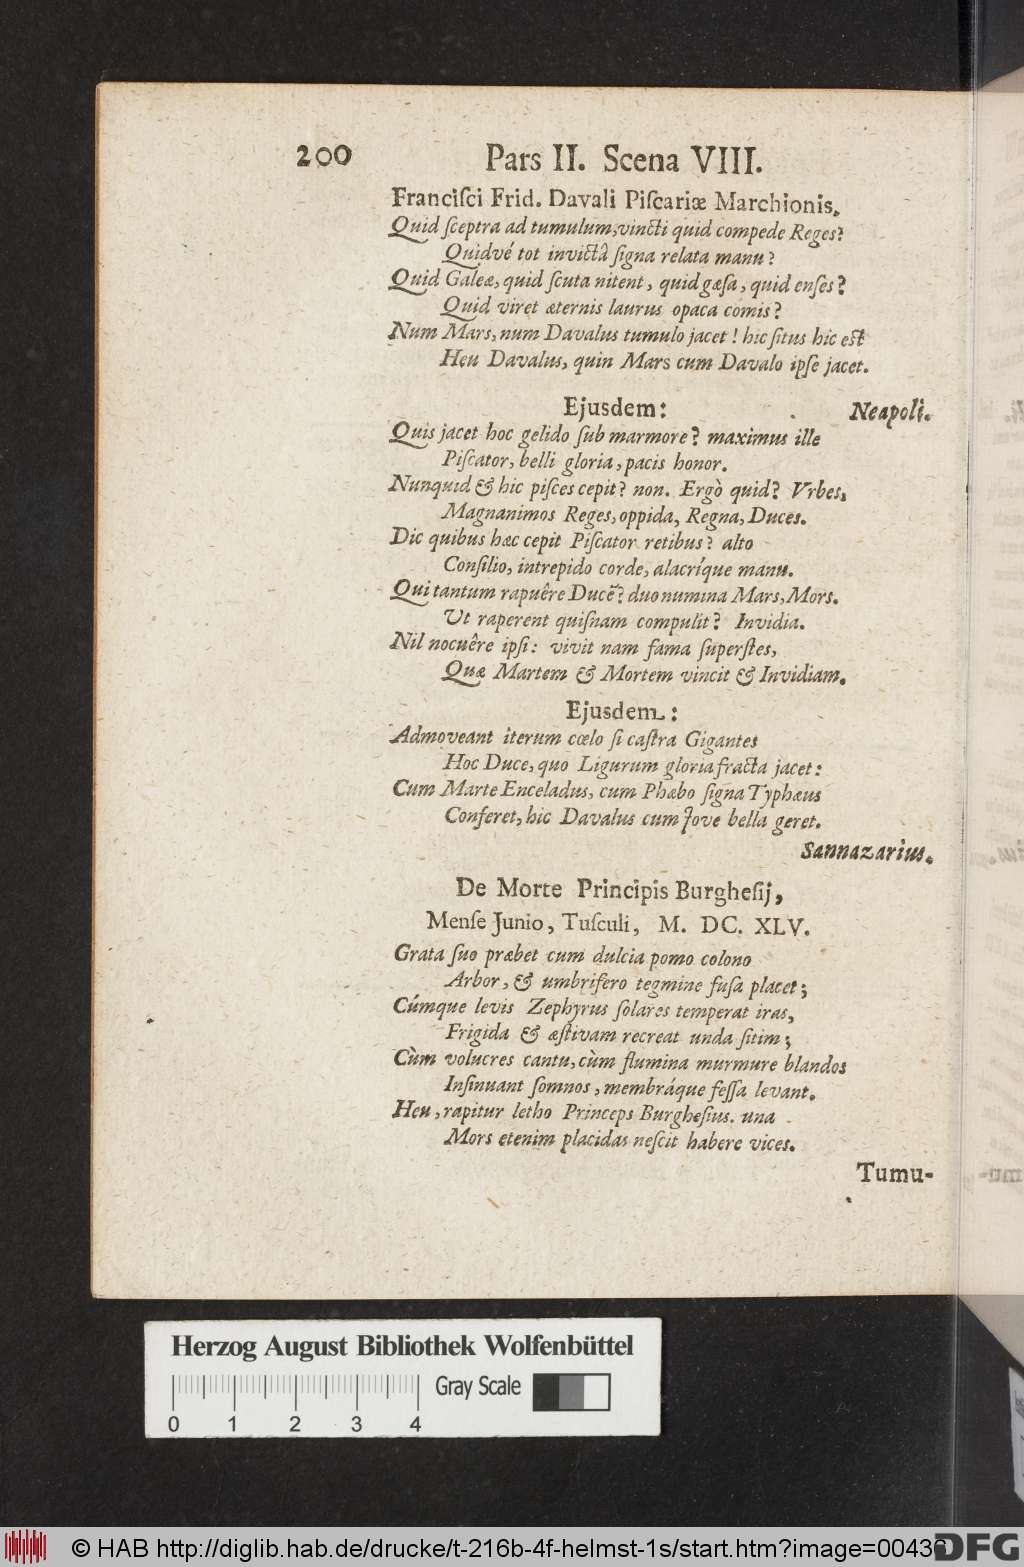 200 Pars II. Scena VIII.
Franciſci Frid. Davali Piſcariæ Marchionis.
Quid ſceptra ad tumulum, vincti quid compede Reges?
Quidvé tot invictâ ſigna relata manu?
Quid Galeæ, quid ſcuta nitent, quid gæſa, quid enſes?
Quid viret æternis laurus opaca comis?
Num Mars, num Davalus tumulo jacet! hic ſitus hic est
Heu Davalus, quin Mars cum Davalo ipſe jacet.
Ejusdem: Neapoli.
Quis jacet hoc gelido ſub marmore? maximus ille
Piſcator, belli gloria, pacis honor.
Nunquid & hic piſces cepit? non. Ergò quid? Vrbes,
Magnanimos Reges, oppida, Regna, Duces.
Dic quibus hæc cepit Piſcator retibus? alto
Conſilio, intrepido corde, alacríque manu.
Qui tantum rapuêre Ducē? duo numina Mars, Mors.
Ut raperent quiſnam compulit? Invidia.
Nil nocuêre ipſi: vivit nam fama ſuperſtes,
Quæ Martem & Mortem vincit & Invidiam.
Ejusdem:
Admoveant iterum cœlo ſi caſtra Gigantes
Hoc Duce, quo Ligurum gloria fracta jacet:
Cum Marte Enceladus, cum Phœbo ſigna Typhœus
Conferet, hic Davalus cum Jove bella geret.
Sannazarius.
De Morte Principis Burgheſij,
Menſe Junio, Tuſculi, M. DC. XLV.
Grata ſuo præbet cum dulcia pomo colono
Arbor, & umbrifero tegmine fuſa placet;
Cúmque levis Zephyrus ſolares temperat iras,
Frigida & æſtivam recreat unda ſitim;
Cùm volucres cantu, cùm flumina murmure blandos
Inſinuant ſomnos, membráque feſſa levant.
Heu, rapitur letho Princeps Burgheſius. una
Mors etenim placidas neſcit habere vices.
Tumu-
Herzog August Bibliothek Wolfenbüttel
Gray Scale
0 1 2 3 4
© HAB http://diglib.hab.de/drucke/t-216b-4f-helmst-1s/start.htm?image=00436
DFG